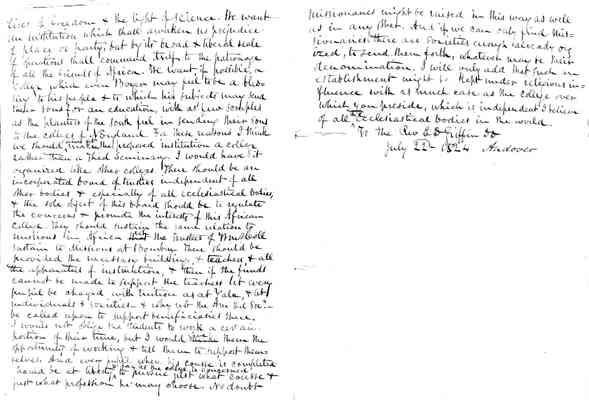 lives of freedom & the light of science. We want
an institution which shall awaken no prejudice
of place or party; but by its broad & liberal scale
of operations shall command itself to the patronage
of all the friends of Africa. We want, if possible, a
College which even Boyer may feel to be a bless
ing to his people & to which his subjects may send
their sons for an education, with as few scruples
as the planters of the south feel in sending their sons
to the colleges of N England. For these reasons I think
we should make the proposed institution a college
rather than a Theol Seminary. I would have it
organized like other colleges. There should be an
incorporated board of trustees independent of all
other bodies & especially of all ecclesiastical bodies,
& the sole object of this board should be to regulate
the concerns & promote the interests of this African
College. They should sustain the same relation to
missions in Africa that the trustees of Wms College
sustain to Missions at Bombay. There should be
provided the necessary buildings, & teachers & all
the apparatus of instruction, & then if the funds
cannot be made to support the teachers let every
pupil be charged with tuition as at Yale, & let
individuals & societies & why not the Am Ed Soc?
be called upon to support beneficiaries there.
I would not oblige the students to work a certain
portion of their time, but I would give them the
opportunity of working & tell them to support them
selves. And every pupil when his course is completed
should be at liberty, as far as the college is concerned
to pursue just what course &
just what profession he may choose. No doubt
missionaries might be raised in this way as well
as in any other. And if we can only find mis-
sionaries there are Societies enough already or
ized, to send them forth, whatever may be their
denomination. I will only add that such an
establishment might be kept under religious in-
fluence with as much ease as the College over
which you preside, which is independent I believe
of all the ecclesiastical bodies in the world.
To the Rev E D Griffin DD
July 22 - 1824 Andover